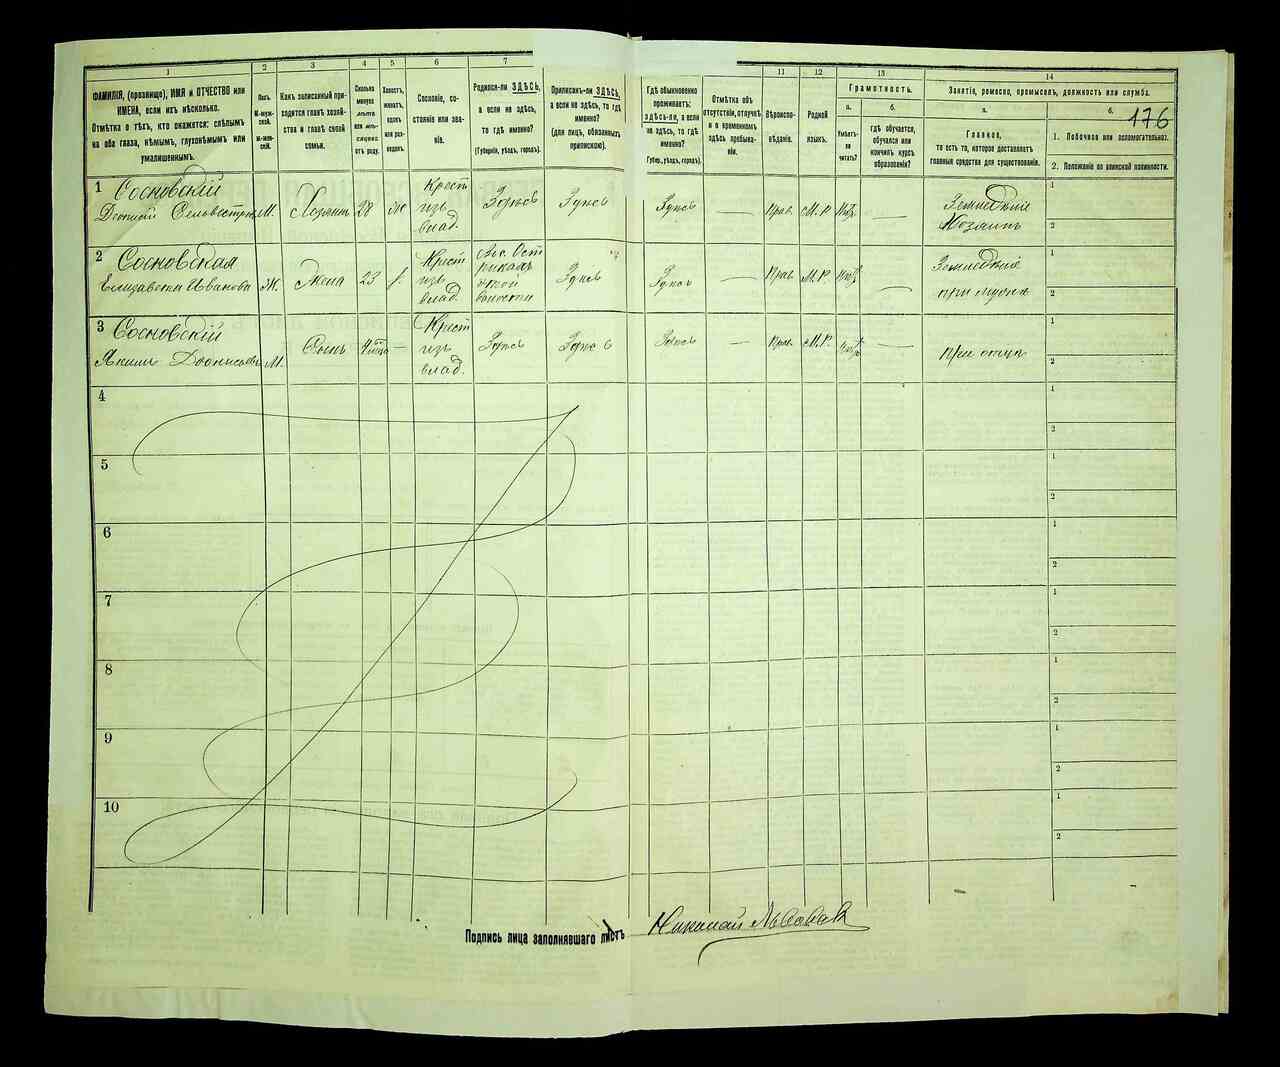 1
2
3
4
5
6
7
11
12
13
14
ФАМИЛІЯ, (прозвище), ИМЯ и ОТЧЕСТВО или
ИМЕНА, если ихъ нѣсколько.
Отмѣтка о тѣхъ, кто окажется: слѣпымъ
на оба глаза, нѣмымъ, глухонѣмымъ или
умалишеннымъ.
Полъ.
М-мужской.
Ж-женскій.
Какъ записанный при-
ходится главѣ хозяй-
ства и главѣ своей
семьи.
Сколько
минуло
лѣтъ
или мѣ-
сяцевъ
отъ роду.
Холостъ,
женатъ,
вдовъ
или раз-
веденъ.
Сословіе, со-
стояніе или зва-
ніе.
Родился-ли ЗДѢСЬ,
а если не здѣсь,
то гдѣ именно?
(Губернія, уѣздъ, городъ).
Приписанъ-ли ЗДѢСЬ,
а если не здѣсь, то гдѣ
именно?
(для лицъ, обязанныхъ
припискою).
Гдѣ обыкновенно
проживаетъ:
здѣсь-ли, а если
не здѣсь, то гдѣ
именно?
(Губер., уѣздъ, городъ).
Отмѣтка объ
отсутствіи, отлучкѣ
и о временномъ
здѣсь пребыва-
ніи.
Вѣроиспо-
вѣданіе.
Родной
языкъ.
Грамотность.
а.
Умѣетъ-
ли
читать?
б.
гдѣ обучается,
обучался или
кончилъ курсъ
образованія?
Занятіе, ремесло, промыселъ, должность или служба.
а.
Главное,
то есть то, которое доставляетъ
главныя средства для существованія.
б.
176
1. Побочное или вспомогательное.
2. Положеніе по воинской повинности.
1 Сосновскій
Сельвестровъ М. Хозяинъ 28 Крест
изъ
влад. Здѣсь Здѣсь Здѣсь — Прав. М.Р. —
Земледѣліе
Хозяинъ
1
2
2 Сосновская
Елизавета Иванова Ж. Жена 23 Крест
изъ
влад. Здѣсь Здѣсь — Прав. М.Р. —
Земледѣліе
при мужѣ
1
2
3 Сосновскій
Якимъ М. Сынъ — Крест
изъ
влад. Здѣсь Здѣсь Здѣсь — Прав. М.Р. —
при отцѣ
1
2
4
1
2
5
1
2
6
1
2
7
1
2
8
1
2
9
1
2
10
1
2
Подпись лица заполнявшаго листъ
Николай